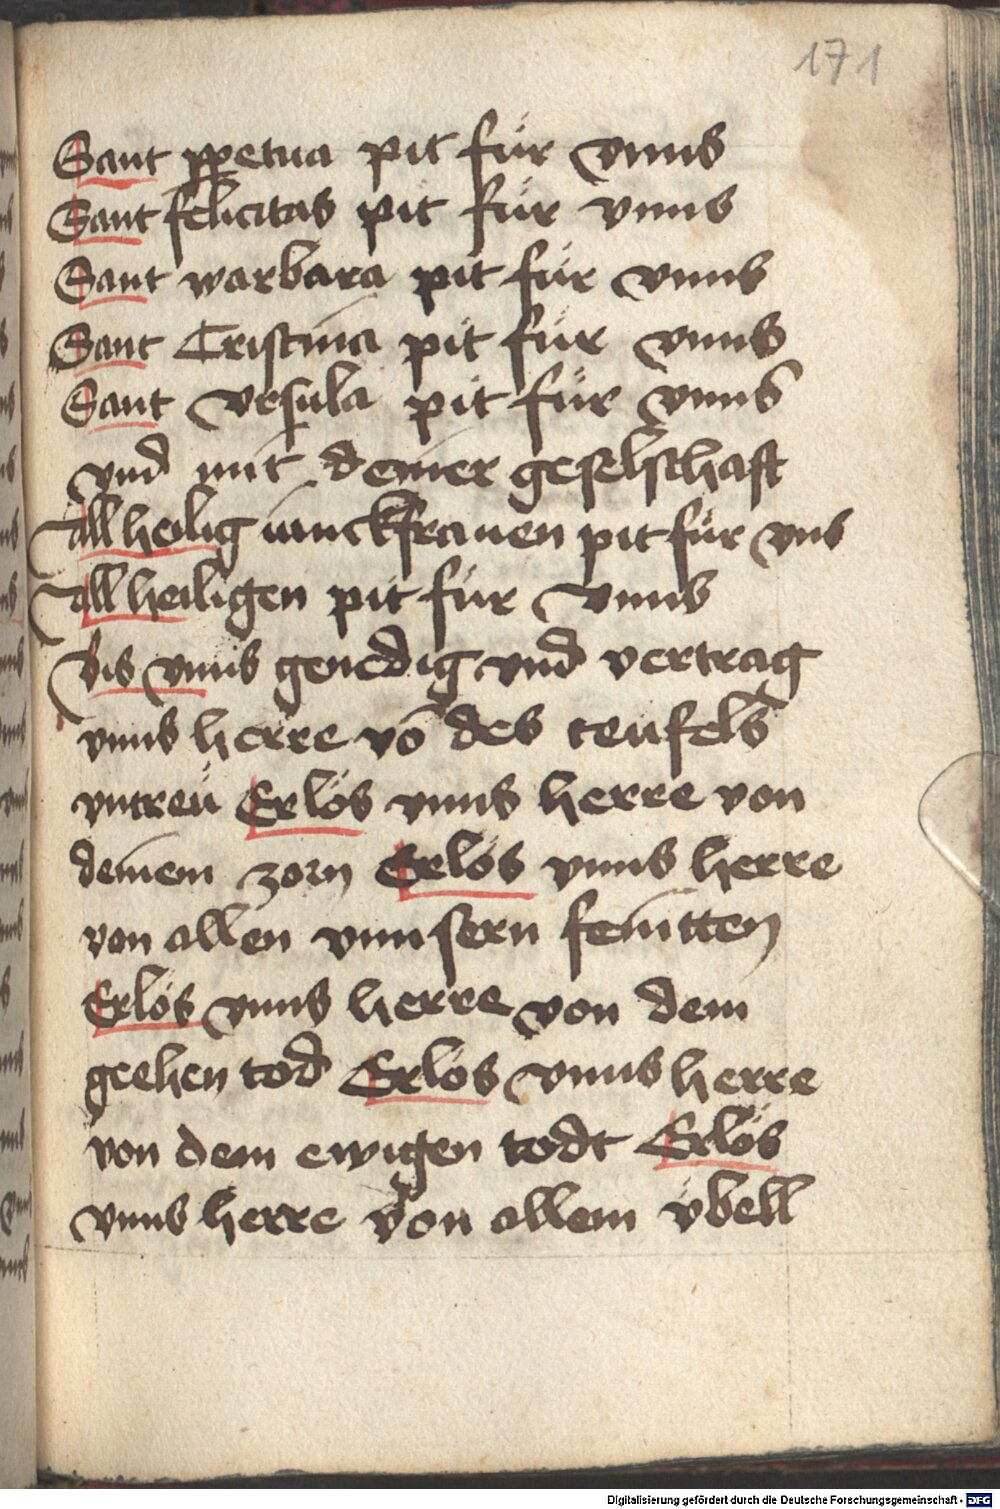 171
Sant ꝑpetua pit für vnns
Sant felicitas pit für vnns
Sant warbara pit für vnns
Sant Cristina pit für vnns
Sant vrsula pit für vnns
vnd mit deiner geselschaft
All heilig iunckfrauen pit für vns
All heiligen pit für vnns
bis vnns genedig vnd vertrag
vnns herre võ des teufels
vntreü Erlös vnns herre von
deinem zorn Erlös vnns herre
von allen vnnsern feintten
Erlös vnns herre von dem
geehen tod Erlös vnns herre
von dem ewigen todt Erlös
vnns herre von allem vbell
Digitalisierung gefördert durch die Deutsche Forschungsgemeinschaft - DFG